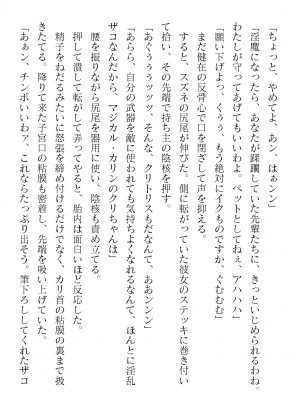 「ちょっと、やめてよ。あン、はぁンン」
「淫魔になったら、あなたが蹂躙していた先輩たちに、きっといじめられるわね。
わたしが守ってあげてもいいわよ。ペットとしてねぇ、アハハハ」
「願い下げよっ、くぅぅ、もう絶対にイクものですか、ぐむむむ」
まだ健在の反骨心で口を閉ざして声を抑える。
すると、スズネの尻尾が伸びた。側に転がっていた彼女のステッキに巻き付い
て拾い、その先端で持ち主の陰核を押す。
「あぐぅぅぅツッッ、そんな、クリトリスもだなんて、ああンンン」
「あらら、自分の武器を敵に使われても気持ちよくなれるなんて、ほんとに淫乱
ザコなんだから、マジカル・カリンのクリちゃんは」
腰を振りながら尻尾を器用に使い、陰核も責め立てる。
押して潰して転がして弄ってやると、胎内は面白いほど反応した。
精子をねだるみたいに怒張を締め付けるだけでなく、カリ首の粘膜の裏まで扱
きたてる。降りて来た子宮口の粘膜も密着し、先端を吸い上げていた。
「あぁン、チンポいいわァ、これならたっぷり出そう。筆下ろししてくれたザコ